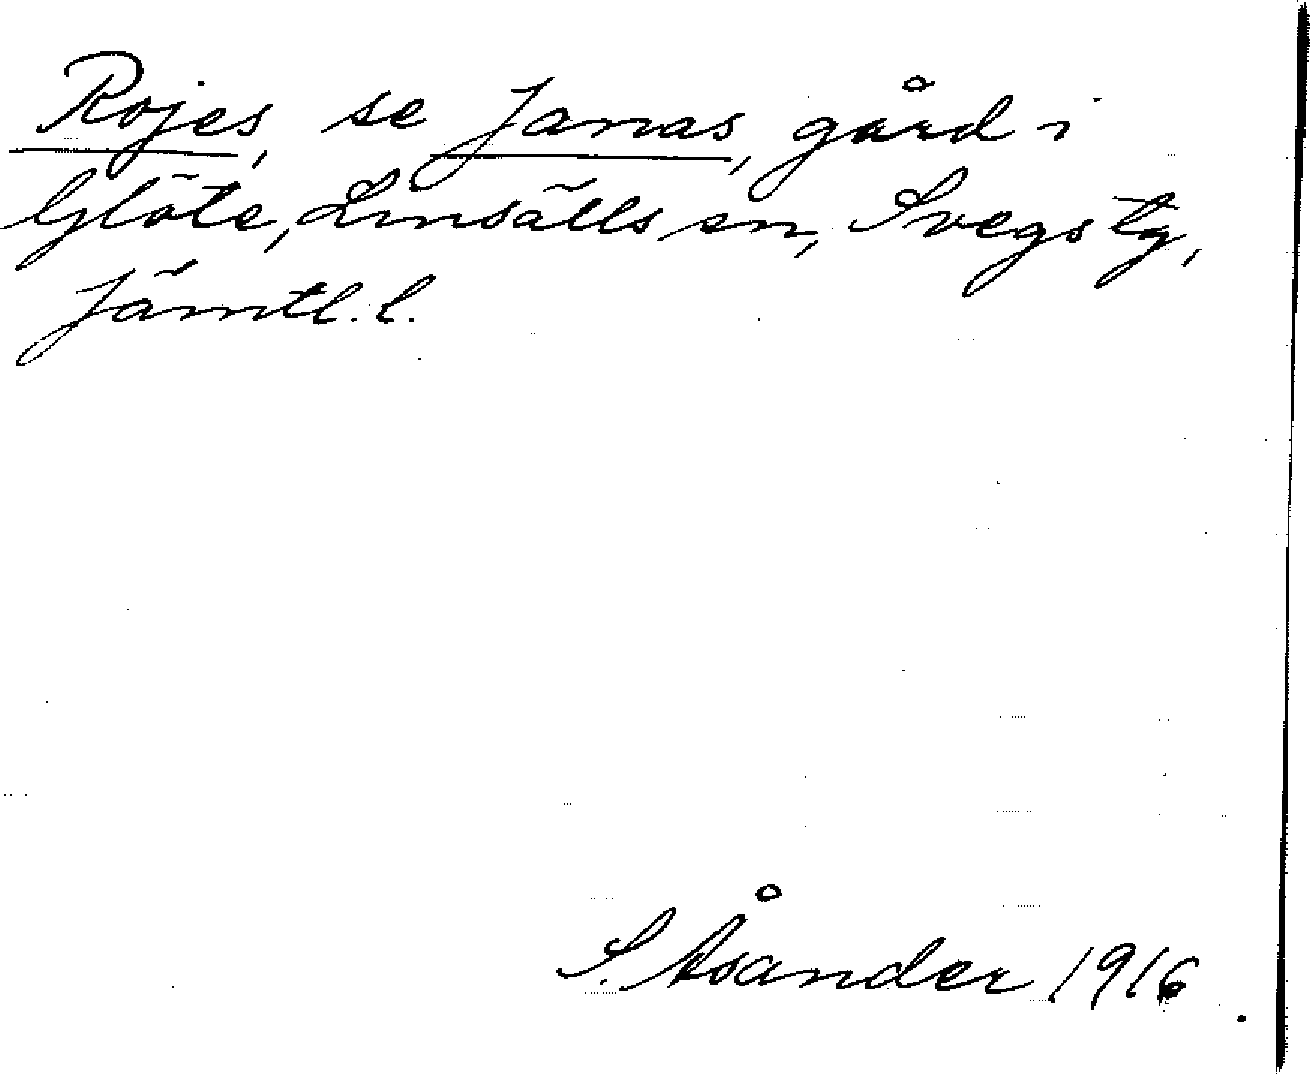 Rojes, se Jamas, gård i
Glöte, Linsälls sn, Svegs tg,
Jämtl. l.
S. Åsander 1916